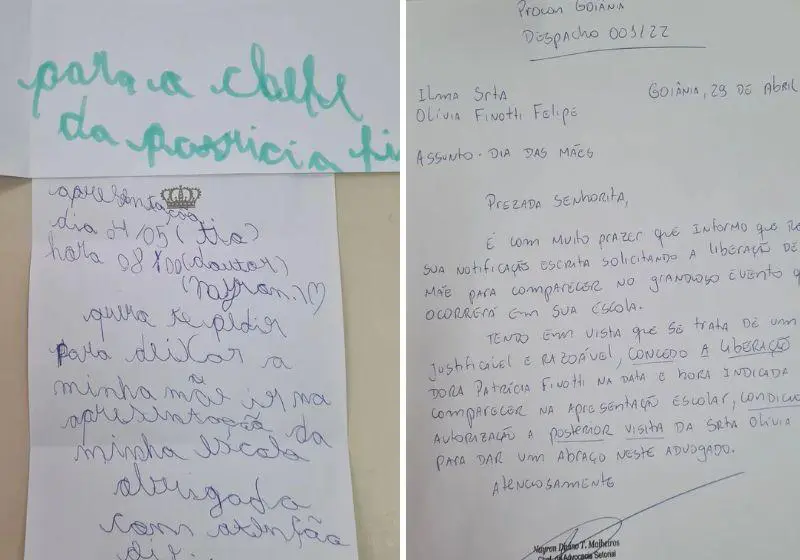 para a cheffe
da parricia fi
apresentação
dia 04/05 (tia)
hora 08:00 (doutor)
(nayron.) ♡
quria te pidir
para deixar a
minha mãe ir na
apresentação da
minha escola
obrigada
com atenção
Procon Goiânia
Despacho 001/22
Ilma Srta
Goiânia, 29 de Abril
Olívia Finotti Felipe
Assunto - Dia das Mães
Prezada Senhorita,
É com muito prazer que informo que re
sua notificação escrita solicitando a liberação de
mãe para comparecer no grandioso evento q
ocorrerá em sua escola.
Tendo em vista que se trata de um
justificável e razoável, concedo a liberação
dora Patrícia Finotti na data e hora indicada
comparecer na apresentação escolar, condicio
autorização a posterior visita da Srta Olívia
para dar um abraço neste advogado.
Atenciosamente
Nayron Divino T. Malheiros
Chefe da Advocacia Setorial